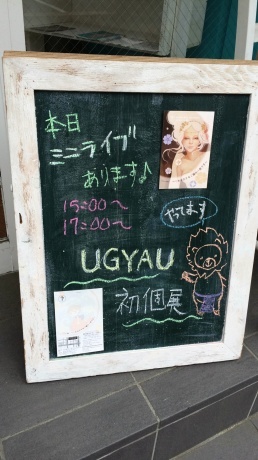 本日
ミニライブ
あります♪
15:00〜
17:00〜
やってます
UGYAU
初個展